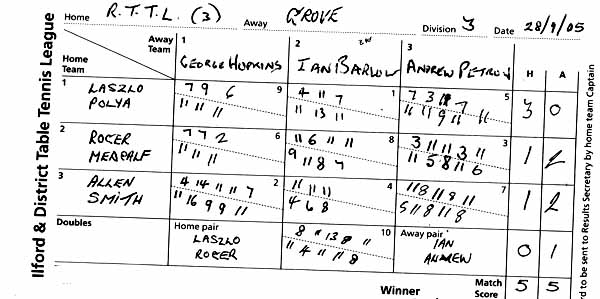 Ilford & District Table Tennis League
Home R.T.T.L. (3) Away GROVE Division 3 Date 28/9/05
Away Team
Home Team
1 GEORGE HOPKINS
2 IAN BARLOW
3 ANDREW PETROV
H A
1 LASZLO POLYA
7 9 6 9
11 11 11
4 11 7 1
11 13 11
7 3 11 7 5
11 11 9 11 11
3 0
2 ROGER MEDCALF
7 7 2 6
11 11 11
11 6 11 11 8
9 11 8 7
3 11 11 3 11 4
11 5 8 11 6
1 2
3 ALLEN SMITH
4 14 11 11 7 2
11 16 9 9 11
11 11 11
4 6 8
11 8 11 8 11 7
5 11 8 11 8
1 2
Doubles
Home pair
LASZLO
ROGER
8 11 13 8 11 10
11 4 11 11 8
Away pair
IAN
ANDREW
0 1
Winner
Match Score 5 5
rd to be sent to Results Secretary by home team Captain